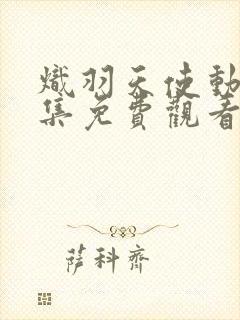 熾羽天使動
集免費觀看
萨科齊